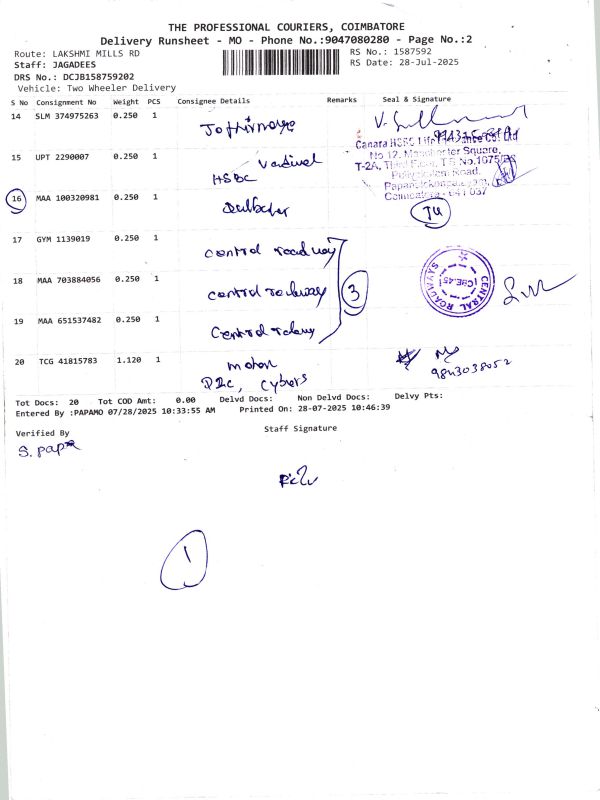 THE PROFESSIONAL COURIERS, COIMBATORE
Delivery Runsheet - MO - Phone No.:9047080280 - Page No.:2
Route: LAKSHMI MILLS RD RS No.: 1587592
Staff: JAGADEES RS Date: 28-Jul-2025
DRS No.: DCJB158759202
Vehicle: Two Wheeler Delivery
S No Consignment No Weight PCS Consignee Details Remarks Seal & Signature
14 SLM 374975263 0.250 1
Canara HSBC Life Co. Ltd
No 12, Manchester Square,
15 UPT 2290007 0.250 1
T-2A, Third Floor, T.S No.1075/
HSBC
Road,
16 MAA 100320981 0.250 1
Coimbatore - 641 037
17 GYM 1139019 0.250 1
central roadway
18 MAA 703884056 0.250 1
central 3
CENTRAL ROADWAYS
CBE.45
19 MAA 651537482 0.250 1
Central
20 TCG 41815783 1.120 1
mohan
cybers
9843038052
Tot Docs: 20 Tot COD Amt: 0.00 Delvd Docs: Non Delvd Docs: Delvy Pts:
Entered By :PAPAMO 07/28/2025 10:33:55 AM Printed On: 28-07-2025 10:46:39
Verified By Staff Signature
S. papa
1